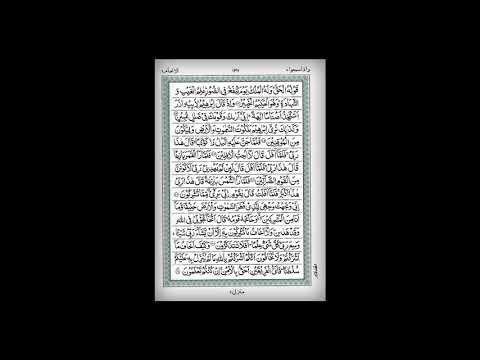 واذا سمعوا
الانعام
قَوْلُهُ الْحَقُّ وَلَهُ الْمُلْكُ يَوْمَ يُنْفَخُ فِي الصُّوْرِ عٰلِمُ الْغَيْبِ وَ
الشَّهَادَةِ وَهُوَ الْحَكِيْمُ الْخَبِيْرُ وَاِذْ قَالَ اِبْرٰهِيْمُ لِاَبِيْهِ اٰزَرَ
اَتَتَّخِذُ اَصْنَامًا اٰلِهَةً اِنِّيْ اَرٰىكَ وَقَوْمَكَ فِيْ ضَلٰلٍ مُّبِيْنٍ
وَكَذٰلِكَ نُرِيْ اِبْرٰهِيْمَ مَلَكُوْتَ السَّمٰوٰتِ وَالْاَرْضِ وَلِيَكُوْنَ
مِنَ الْمُوْقِنِيْنَ فَلَمَّا جَنَّ عَلَيْهِ الَّيْلُ رَاٰ كَوْكَبًا قَالَ هٰذَا
رَبِّيْ فَلَمَّا اَفَلَ قَالَ لَا اُحِبُّ الْاٰفِلِيْنَ فَلَمَّا رَاَ الْقَمَرَ بَازِغًا
قَالَ هٰذَا رَبِّيْ فَلَمَّا اَفَلَ قَالَ لَئِنْ لَّمْ يَهْدِنِيْ رَبِّيْ لَاَكُوْنَنَّ
مِنَ الْقَوْمِ الضَّآلِّيْنَ فَلَمَّا رَاَ الشَّمْسَ بَازِغَةً قَالَ هٰذَا رَبِّيْ
هٰذَا اَكْبَرُ فَلَمَّا اَفَلَتْ قَالَ يٰقَوْمِ اِنِّيْ بَرِيْٓءٌ مِّمَّا تُشْرِكُوْنَ
اِنِّيْ وَجَّهْتُ وَجْهِيَ لِلَّذِيْ فَطَرَ السَّمٰوٰتِ وَالْاَرْضَ حَنِيْفًا وَّمَا
اَنَا مِنَ الْمُشْرِكِيْنَ وَحَآجَّهٗ قَوْمُهٗ قَالَ اَتُحَآجُّوْٓنِّيْ فِي اللّٰهِ
وَقَدْ هَدٰىنِ وَلَا اَخَافُ مَا تُشْرِكُوْنَ بِهٖ اِلَّا اَنْ يَّشَآءَ رَبِّيْ شَيْئًا
وَسِعَ رَبِّيْ كُلَّ شَيْءٍ عِلْمًا اَفَلَا تَتَذَكَّرُوْنَ وَكَيْفَ اَخَافُ مَا
اَشْرَكْتُمْ وَلَا تَخَافُوْنَ اَنَّكُمْ اَشْرَكْتُمْ بِاللّٰهِ مَا لَمْ يُنَزِّلْ بِهٖ عَلَيْكُمْ
سُلْطٰنًا فَاَيُّ الْفَرِيْقَيْنِ اَحَقُّ بِالْاَمْنِ اِنْ كُنْتُمْ تَعْلَمُوْنَ
منزل